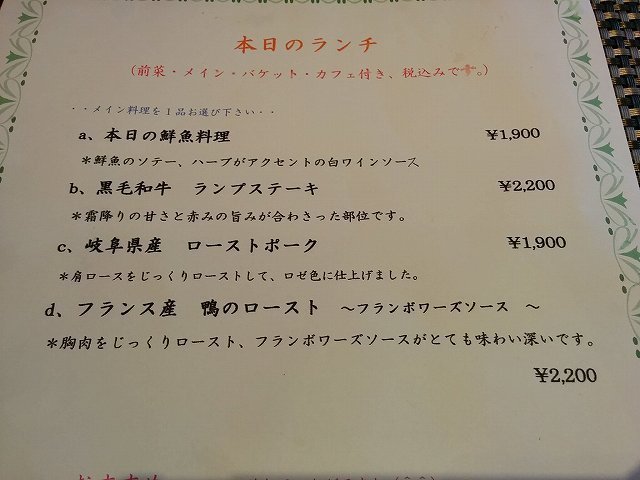 本日のランチ
(前菜・メイン・バケット・カフェ付き、税込みです。)
・・メイン料理を1品お選び下さい・・
a、本日の鮮魚料理 ¥1,900
＊鮮魚のソテー、ハーブがアクセントの白ワインソース
b、黒毛和牛 ランプステーキ ¥2,200
＊霜降りの甘さと赤みの旨みが合わさった部位です。
c、岐阜県産 ローストポーク ¥1,900
＊肩ロースをじっくりローストして、ロゼ色に仕上げました。
d、フランス産 鴨のロースト ～フランボワーズソース ～
＊胸肉をじっくりロースト、フランボワーズソースがとても味わい深いです。
¥2,200